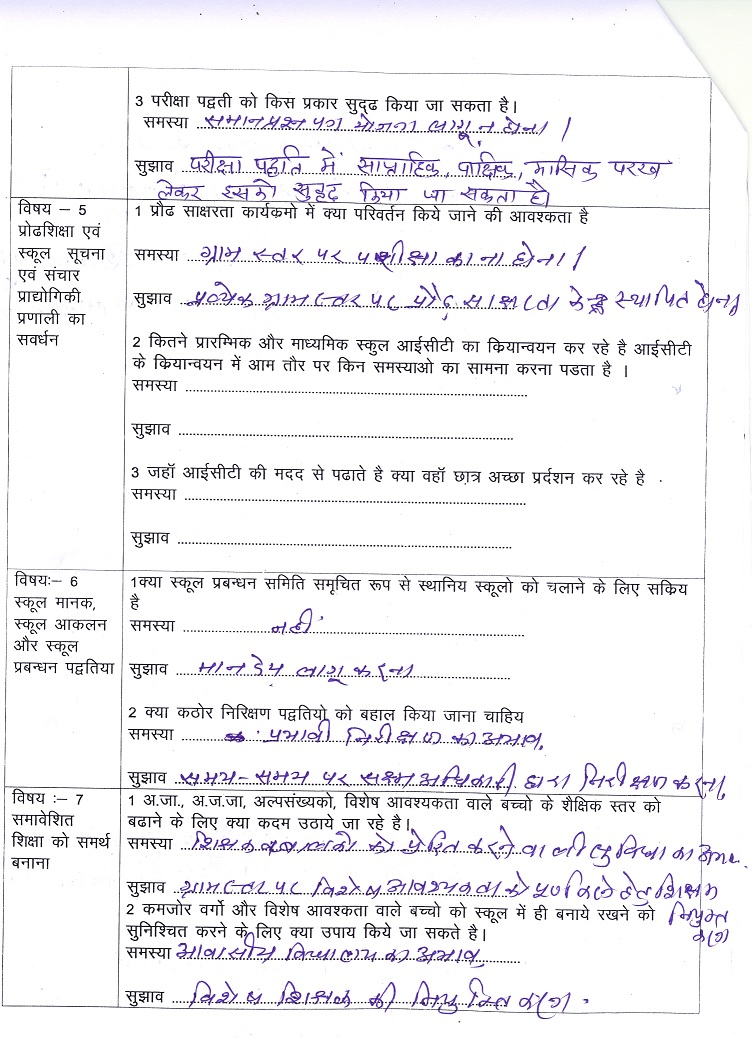 3 परीक्षा पद्वती को किस प्रकार सुदृढ किया जा सकता है।
समस्या समान प्रश्न पत्र योजना लागू न होना।
सुझाव परीक्षा पद्दति में साप्ताहिक, पाक्षिक, मासिक परख
लेकर इसको सुदृढ किया जा सकता है।
विषय – 5
प्रोढशिक्षा एवं
स्कूल सूचना
एवं संचार
प्राद्योगिकी
प्रणाली का
सवर्धन
1 प्रौढ साक्षरता कार्यकमो में क्या परिवर्तन किये जाने की आवश्कता है
समस्या ग्राम स्तर पर परीक्षा का ना होना।
सुझाव प्रत्येक ग्राम स्तर पर प्रौढ़ साक्षरता केन्द्र स्थापित होना
2 कितने प्रारम्भिक और माध्यमिक स्कुल आईसीटी का कियान्वयन कर रहे है आईसीटी
के कियान्वयन में आम तौर पर किन समस्याओ का सामना करना पडता है ।
समस्या
सुझाव
3 जहॉ आईसीटी की मदद से पढाते है क्या वहॉ छा़त्र अच्छा प्रर्दशन कर रहे है
समस्या
सुझाव
विषयः– 6
स्कूल मानक,
स्कूल आकलन
और स्कूल
प्रबन्धन पद्वतिया
1क्या स्कूल प्रबन्धन समिति समृचित रूप से स्थानिय स्कूलो को चलाने के लिए सकिय
है
समस्या नहीं
सुझाव मानदेय लागू करना
2 क्या कठोर निरिक्षण पद्वतियो को बहाल किया जाना चाहिय
समस्या प्रभावी निरीक्षण का अभाव
सुझाव समय-समय पर सक्षम अधिकारी द्वारा निरीक्षण करना
विषय :– 7
समावेशित
शिक्षा को समर्थ
बनाना
1 अ.जा., अ.ज.जा, अल्पसंख्यको, विशेष आवश्यकता वाले बच्चो के शैक्षिक स्तर को
बढाने के लिए क्या कदम उठाये जा रहे है।
समस्या शिक्षक व बालको को प्रेरित करने वाली सुविधा का अभाव
सुझाव ग्राम स्तर पर विशेष आवश्यकता को पूर्ण हेतु शिक्षक
नियुक्त
करना
2 कमजोर वर्गो और विशेष आवश्कता वाले बच्चो को स्कूल में ही बनाये रखने को
सुनिश्चित करने के लिए क्या उपाय किये जा सकते है।
समस्या आवासीय विधालय का अभाव
सुझाव विशेष शिक्षक की नियुक्ति करना